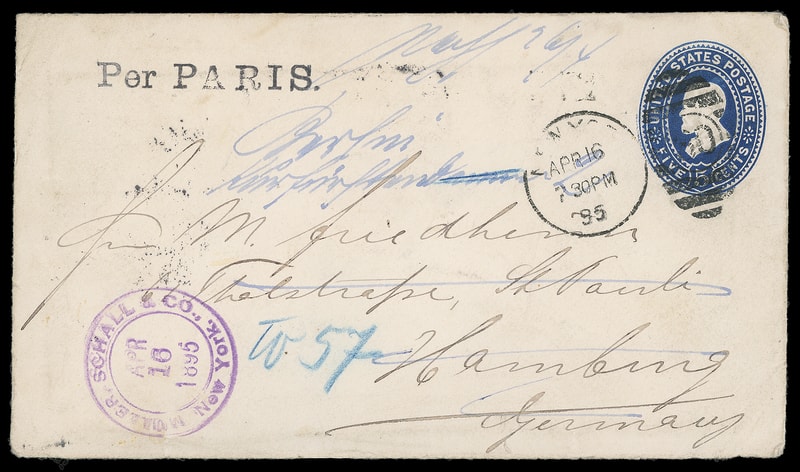 Per PARIS.
UNITED STATES POSTAGE
FIVE CENTS
NEW YORK
APR 16
7 30PM
95
Berlin
M. Friedheim
Thalstraße, St Pauli
Hamburg
Germany
W 57
MULLER, SCHALL & CO., New York.
APR
16
1895